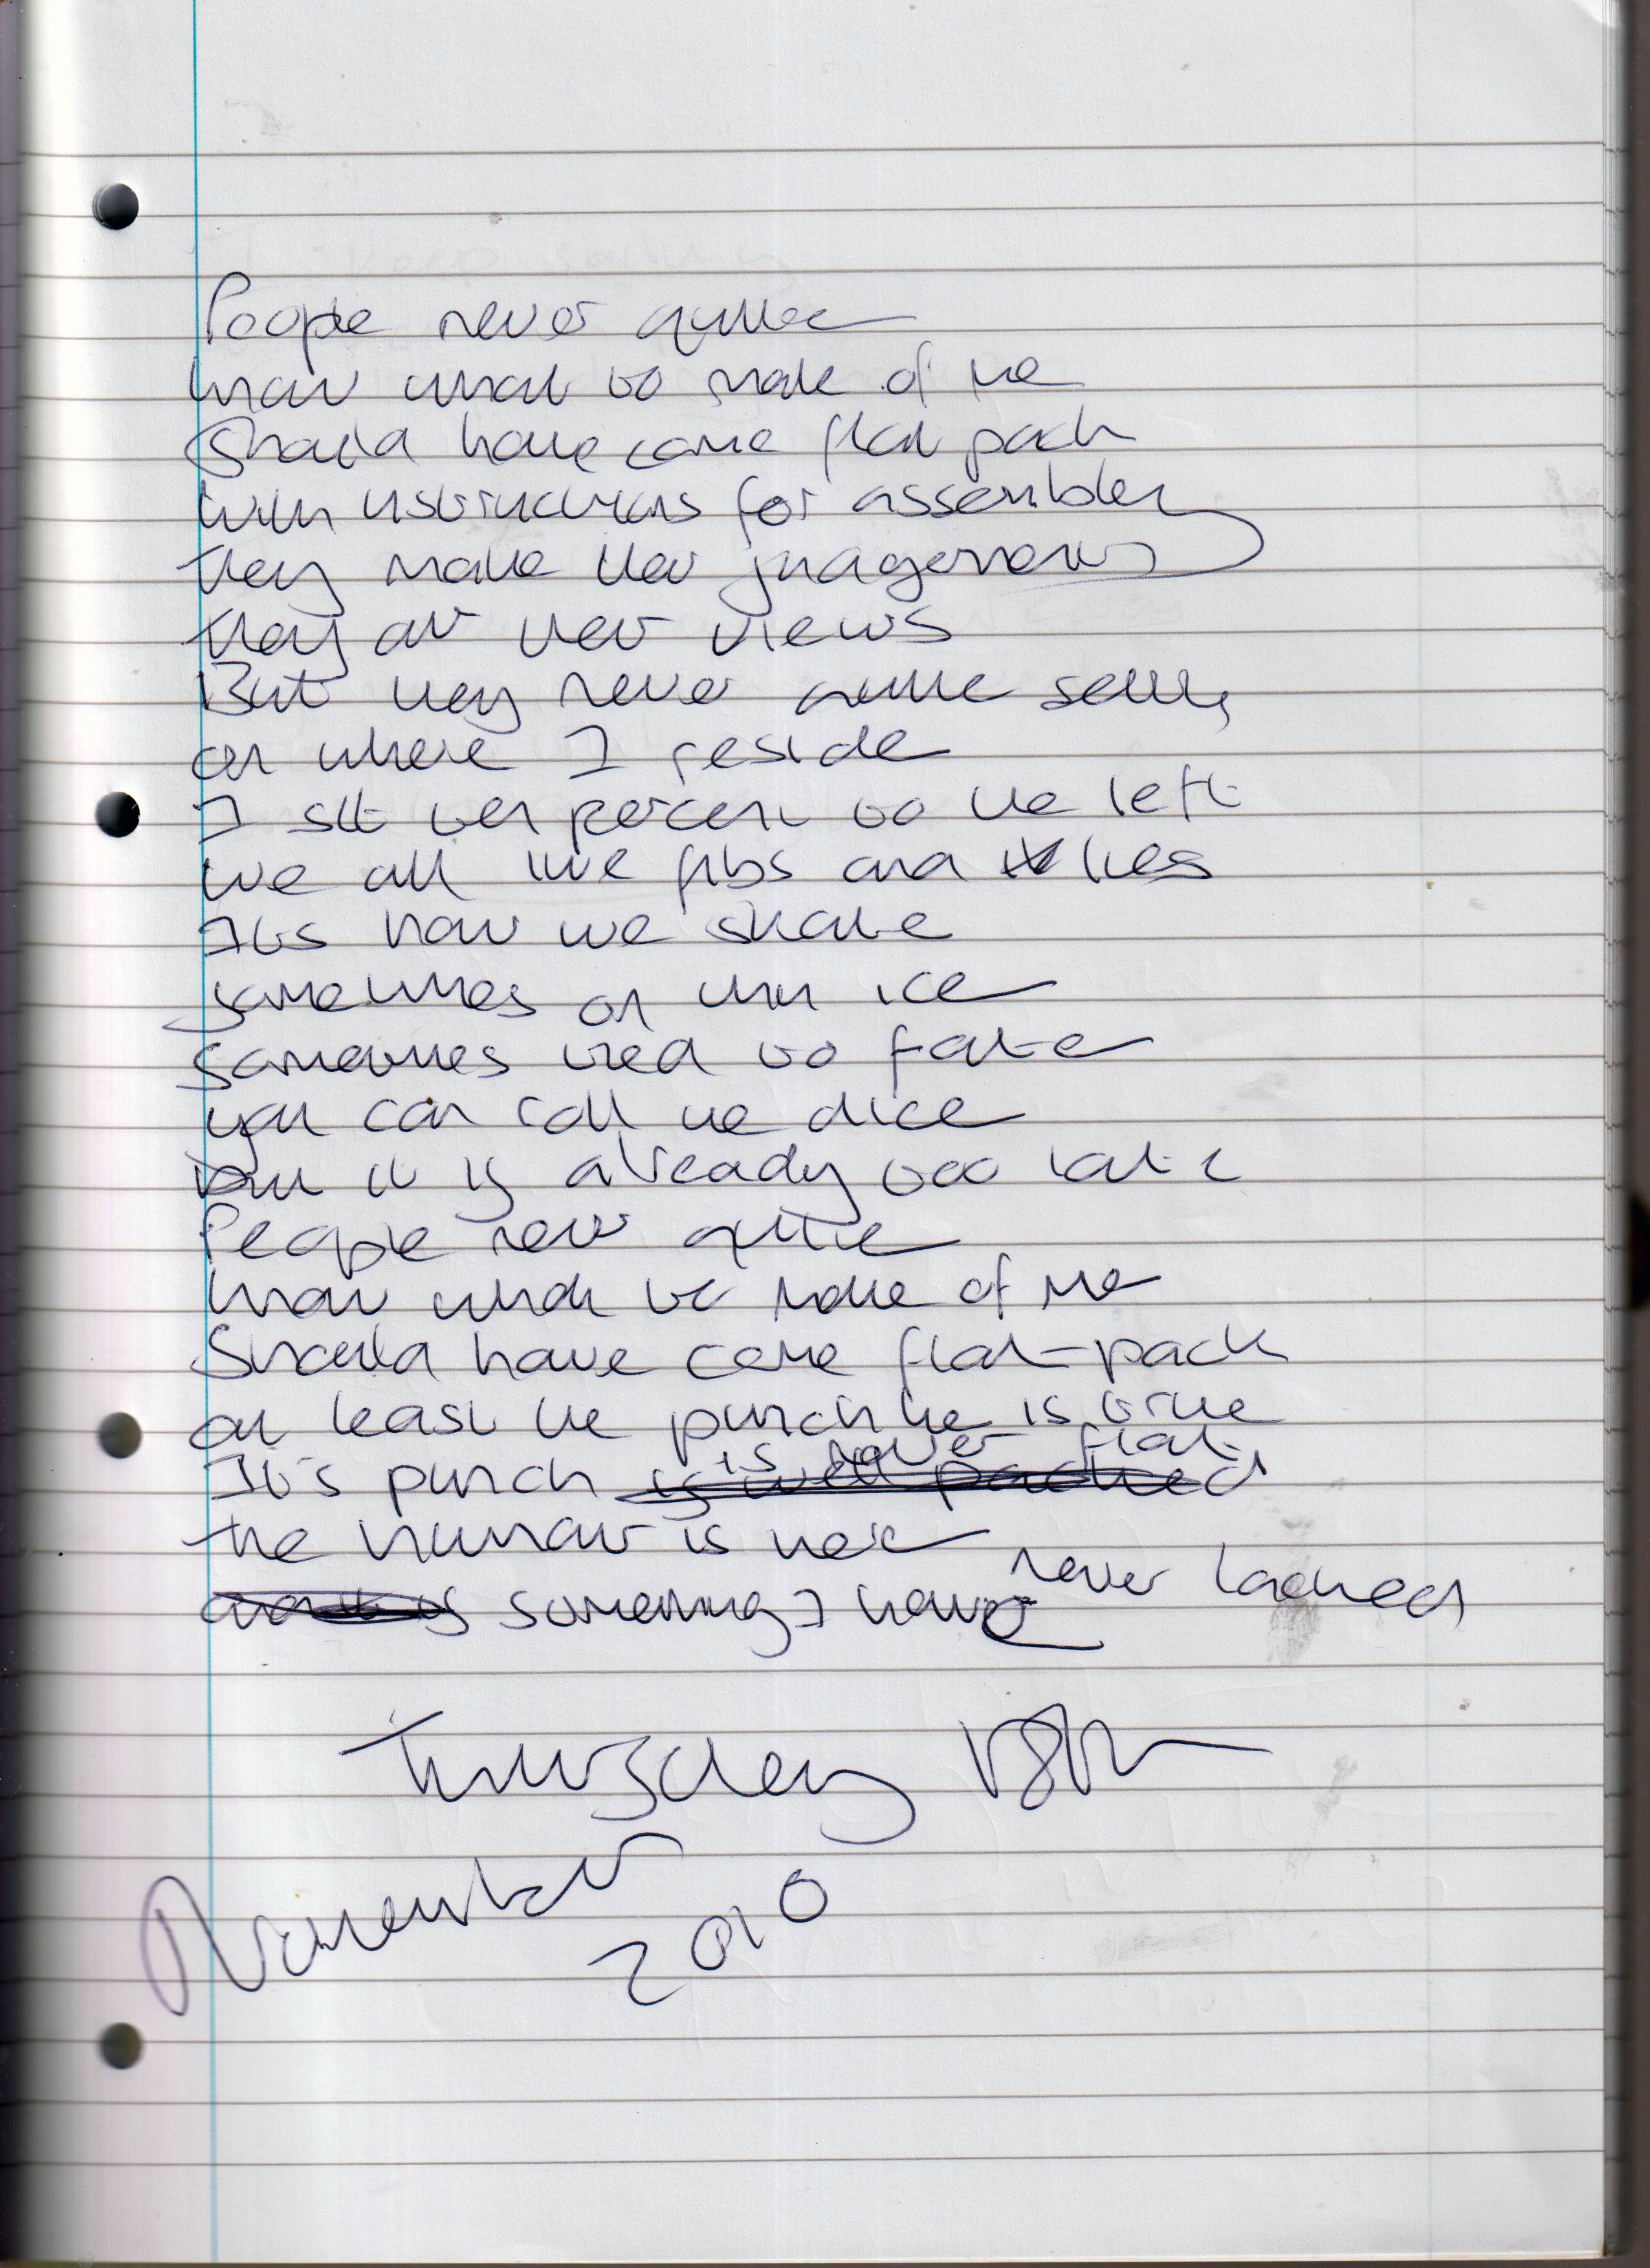 People never quite
know what to make of me
Should have come flat pack
with instructions for assembly
they make their judgements
they air their views
But they never quite settle
on where I reside
I sit ten percent to the left
we all live fibs and lies
It's how we skate
sometimes on thin ice
sometimes tied to fate
you can roll the dice
but it is already too late
People never quite
know what to make of me
Should have come flat-pack
at least the punchline is true
It's punch is never flat
the humour is there
something I have never lacked
Thursday 18th
November
2010